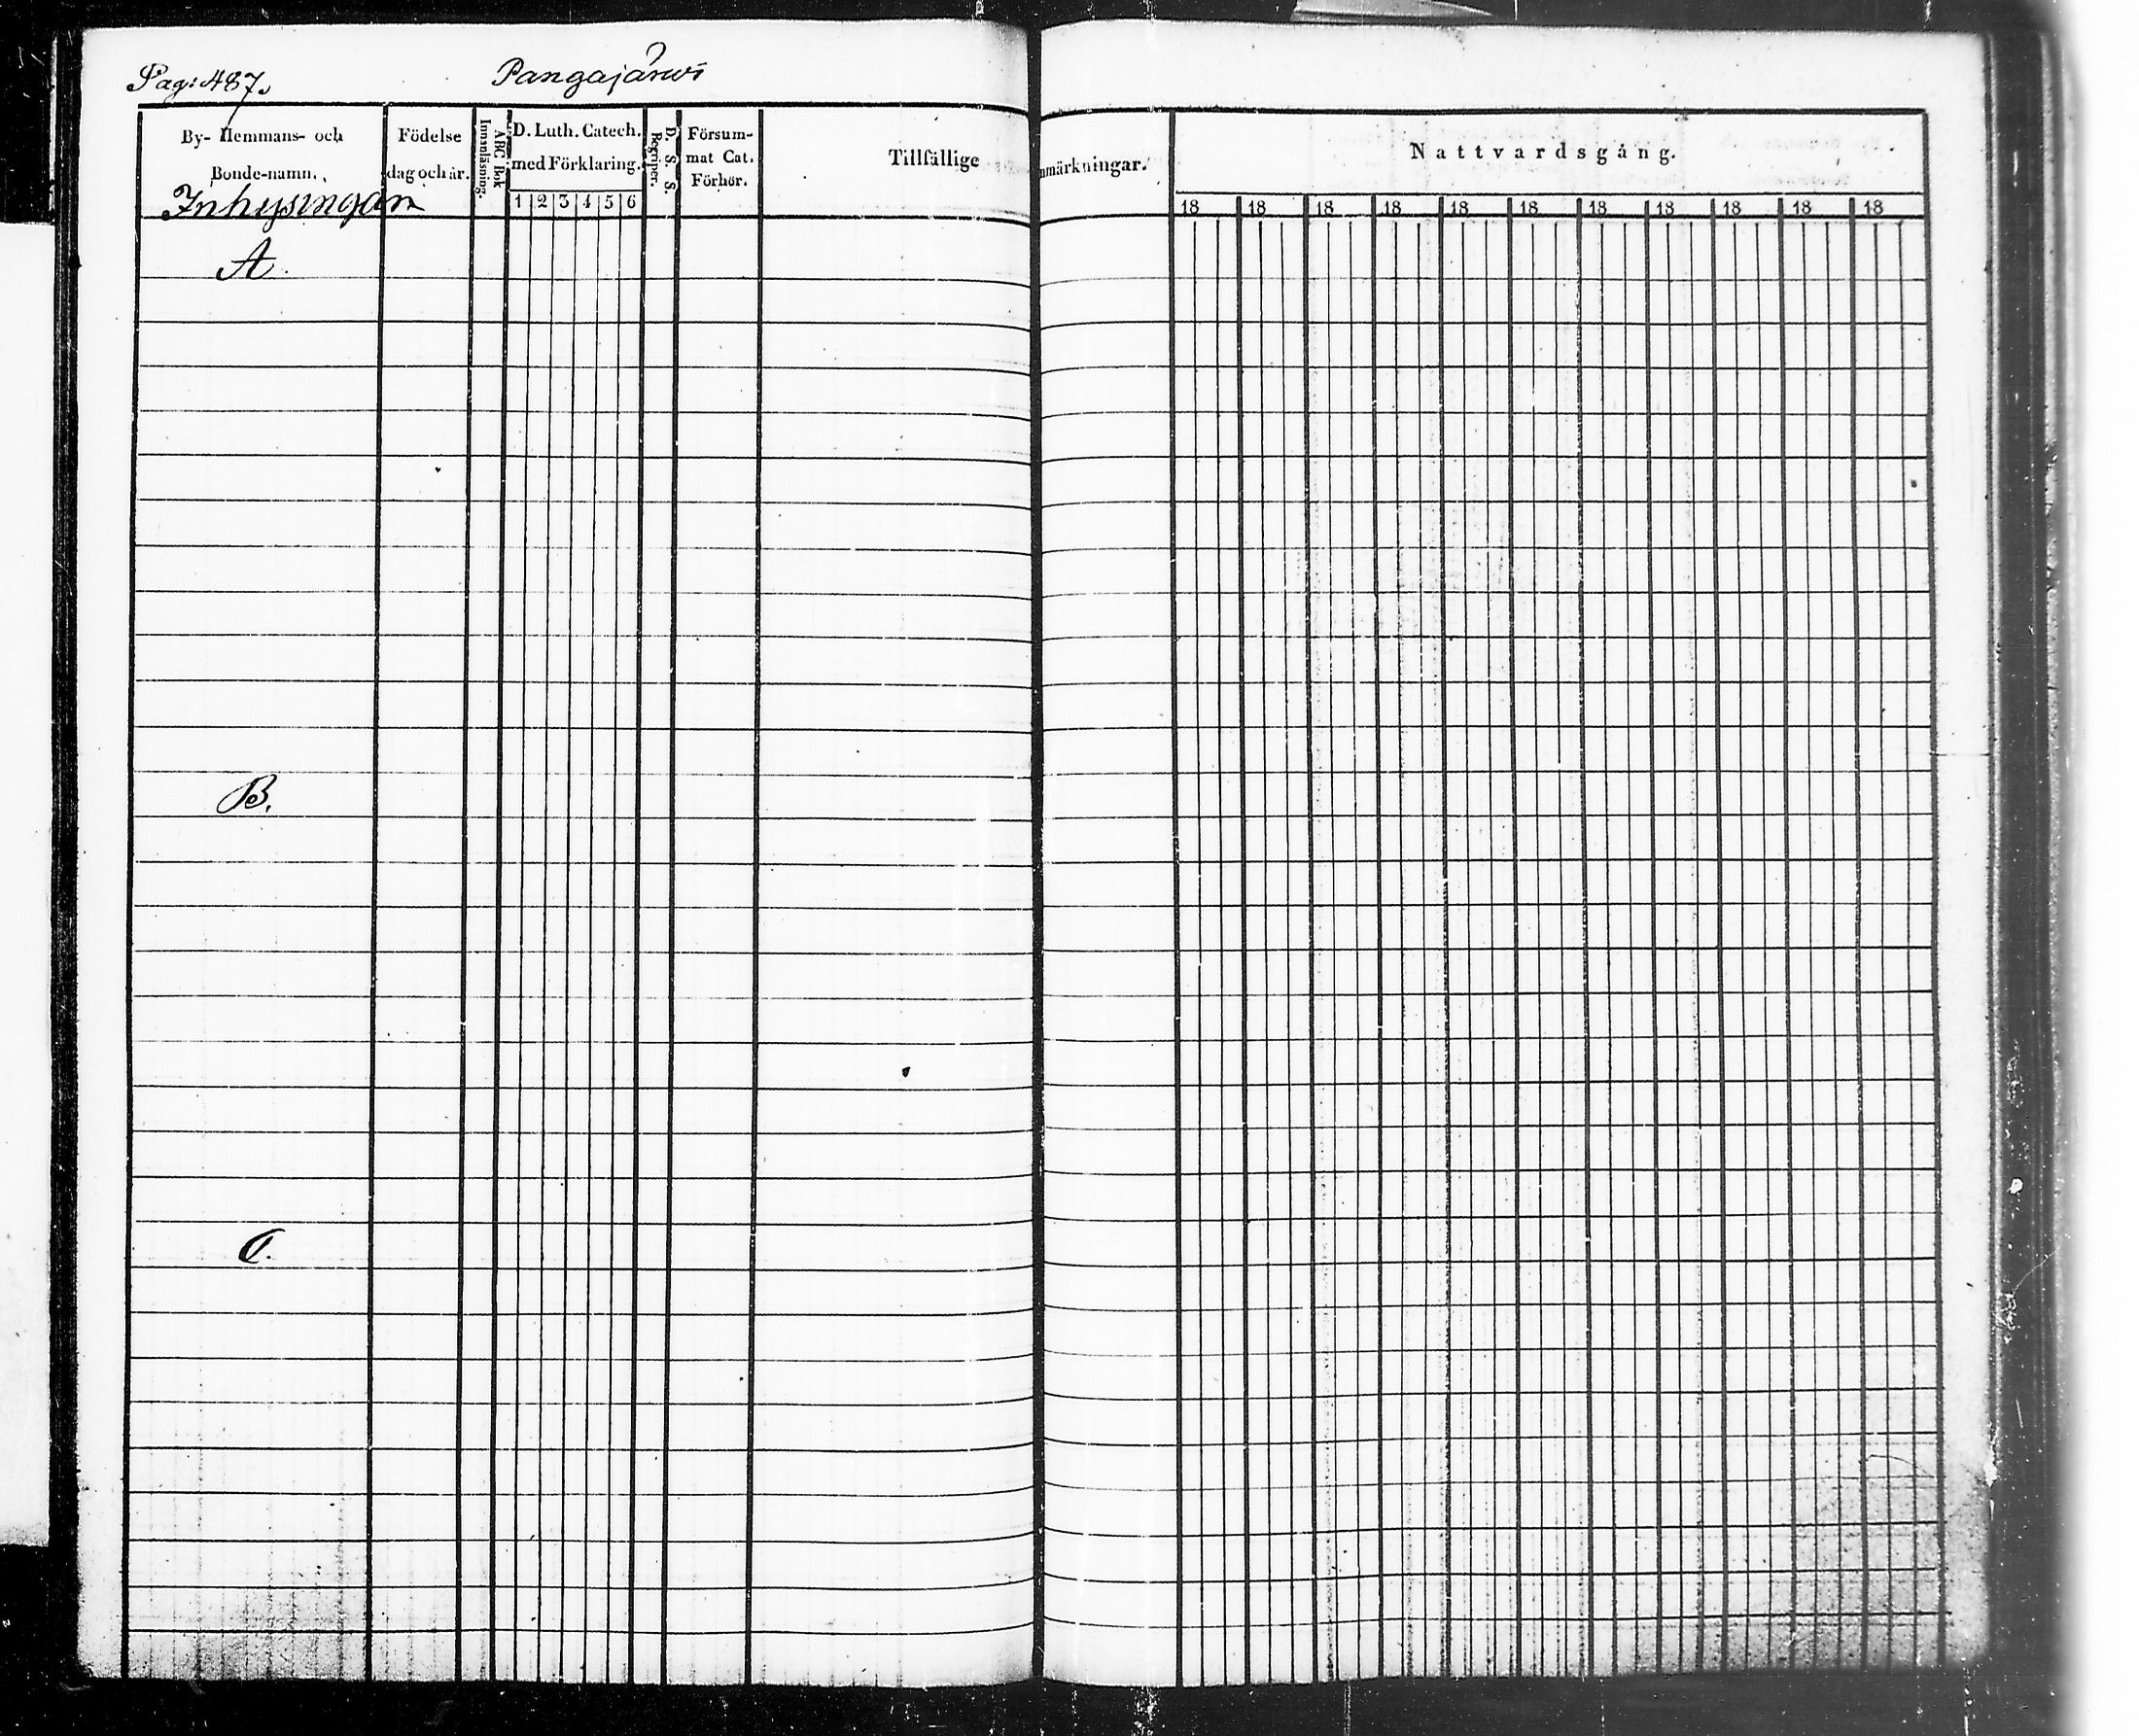 Pag: 487.
Pangajärwi
By- Hemmans- och
Bonde-namn.
Inhysingar
Födelse
dag och år.
Innanläsning.
ABC Bok
D. Luth. Catech.
med Förklaring.
1 2 3 4 5 6
Begriper.
D. S. S.
Försum-
mat Cat.
Förhör.
Tillfällige
nmärkningar.
Nattvardsgång.
18 18 18 18 18 18 18 18 18 18 18
A.
B.
C.